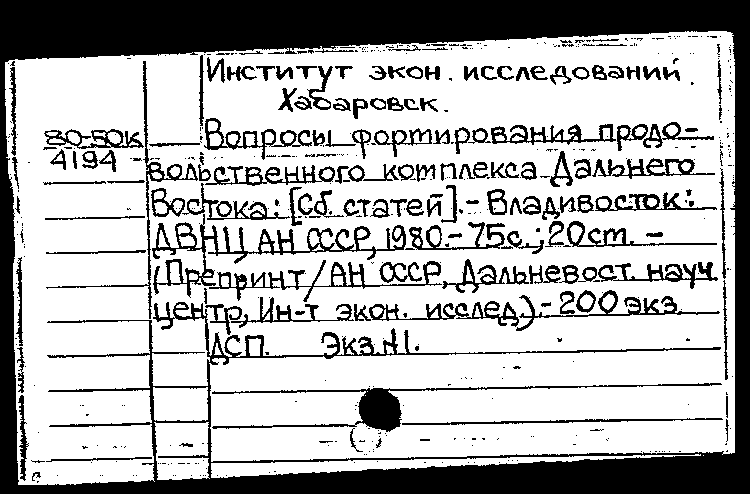 Институт экон. исследований.
Хабаровск.
80-50к Вопросы формирования продо-
4194 вольственного комплекса Дальнего
Востока: [Сб. статей].- Владивосток:
ДВНЦ АН СССР, 1980.- 75с.; 20см. -
(Препринт / АН СССР, Дальневост. науч.
центр, Ин-т экон. исслед.).- 200 экз.
ДСП. Экз.№1.